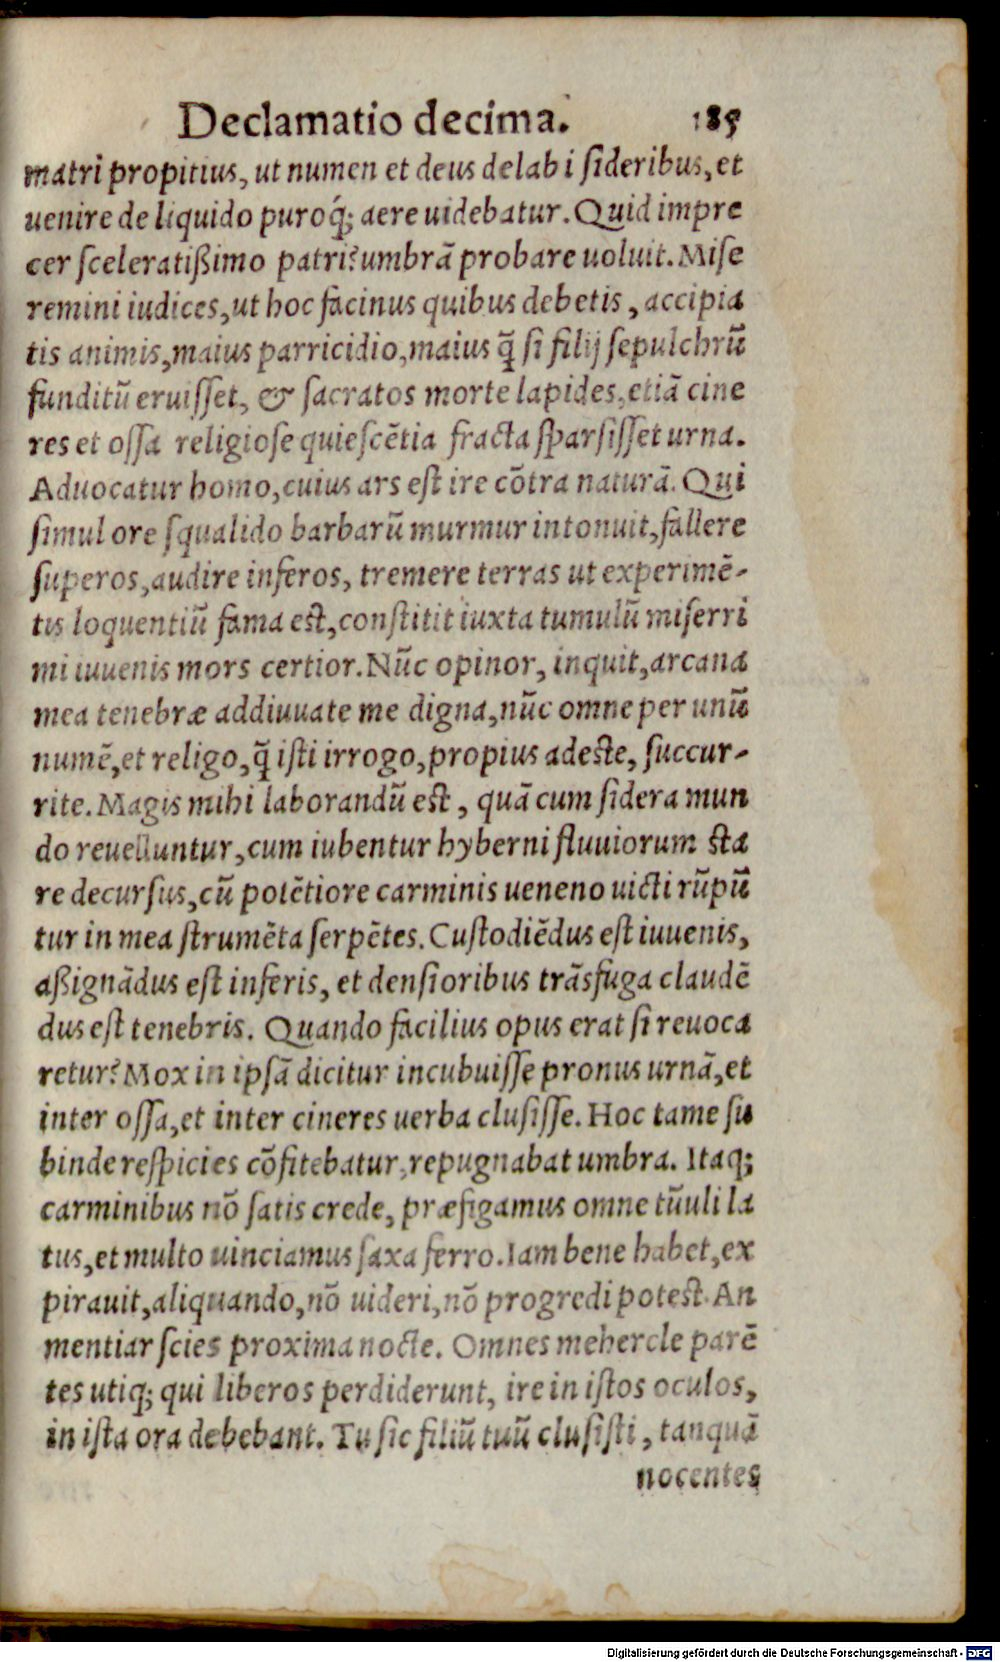 Declamatio decima. 185
matri propitius, ut numen et deus delabi sideribus, et
uenire de liquido puroq́; aere uidebatur. Quid impre
cer sceleratißimo patri? umbrā probare uoluit. Mise
remini iudices, ut hoc facinus quibus debetis, accipia
tis animis, maius parricidio, maius q̄ si filij sepulchrū
funditū eruisset, & sacratos morte lapides, etiā cine
res et ossa religiose quiescētia fracta sparsisset urna.
Aduocatur homo, cuius ars est ire cōtra naturā. Qui
simul ore squalido barbarū murmur intonuit, fallere
superos, audire inferos, tremere terras ut experimē-
tis loquentiū fama est, constitit iuxta tumulū miserri
mi iuuenis mors certior. Nūc opinor, inquit, arcana
mea tenebræ addiuuate me digna, nūc omne per unū
numē, et religo, q̄ isti irrogo, propius adeste, succur-
rite. Magis mihi laborandū est, quā cum sidera mun
do reuelluntur, cum iubentur hyberni fluuiorum sta
re decursus, cū potētiore carminis ueneno uicti rūpū
tur in mea strumēta serpētes. Custodiēdus est iuuenis,
aßignādus est inferis, et densioribus trāsfuga claudē
dus est tenebris. Quando facilius opus erat si reuoca
retur? Mox in ipsā dicitur incubuisse pronus urnā, et
inter ossa, et inter cineres uerba clusisse. Hoc tame su
binde respicies cōfitebatur, repugnabat umbra. Itaq;
carminibus nō satis crede, præfigamus omne tūuli la
tus, et multo uinciamus saxa ferro. Iam bene habet, ex
pirauit, aliquando, nō uideri, nō progredi potest. An
mentiar scies proxima nocte. Omnes mehercle parē
tes utiq; qui liberos perdiderunt, ire in istos oculos,
in ista ora debebant. Tu sic filiū tuū clusisti, tanquā
nocentes
Digitalisierung gefördert durch die Deutsche Forschungsgemeinschaft - DFG